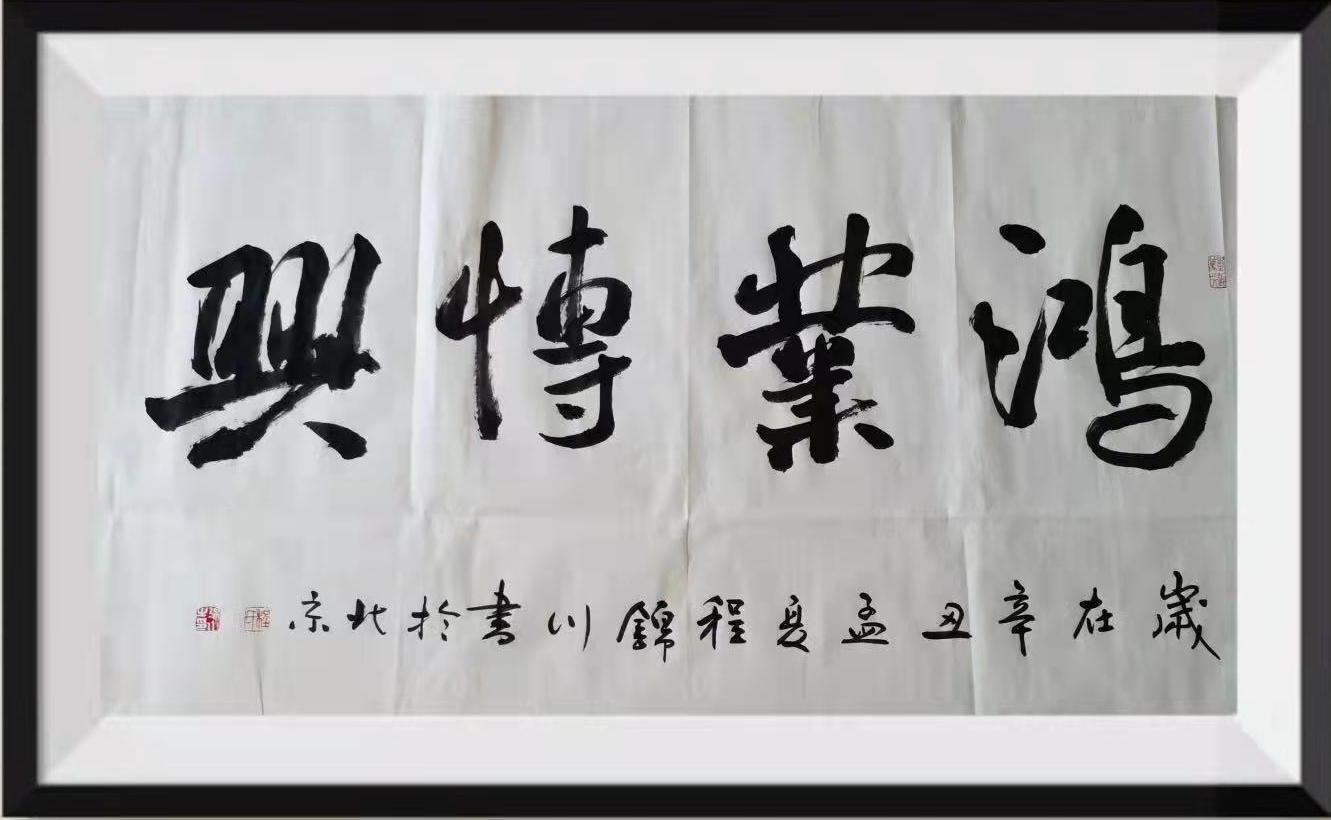 鴻業博興
歲在辛丑孟夏程錦川書於北京